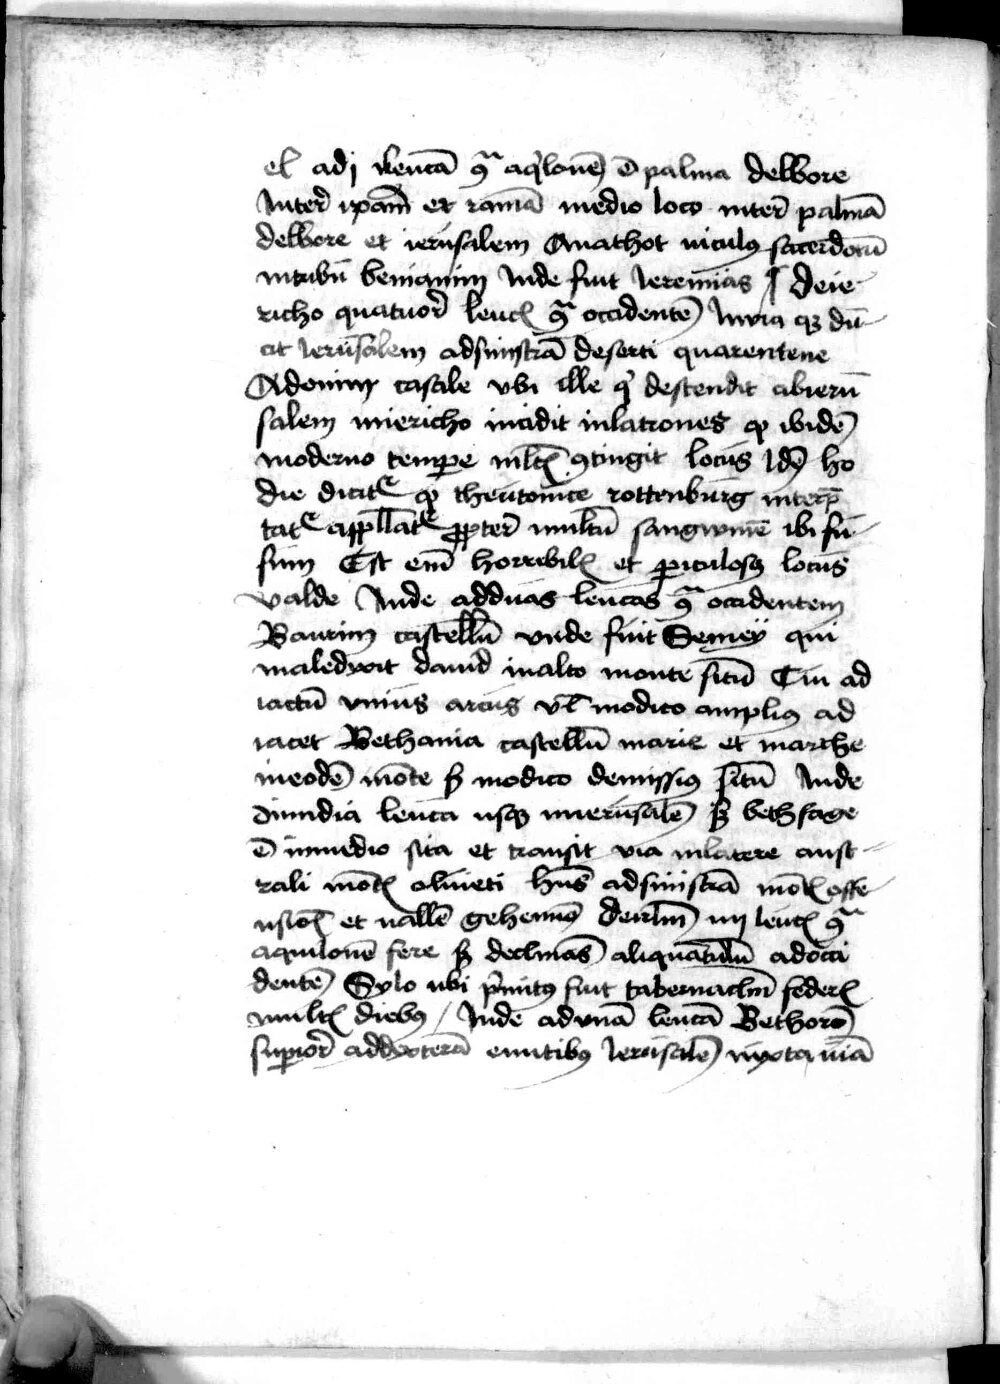 el adj leucā 9ͣ aq̓lonē ē palma delbore
Inter̄ ip̄am et ramā medio loco inter̄ palmā
delbore et ierusalem Anathot viculꝰ sacerdotū
intribū beniamin Inde fuit Jeremias ¶ deie
richo quatuor̄ leucꝭ 9ͣ occidentē Inuia qꝫ du
cit Jerusalem adsinistrā deserti quarentene
Adomim castale vbi ille q̓ descendit abieru
salem inierichо incidit inlatrones qđ ibidē
moderno tempe mltꝭ 9tingit locus Idē ho
die dicitᷣ qđ theutonice rottenburg interp̄
tatᷣ appllatᷣ ꝓpter multū sangwinē ibi fu
sum Est em̄ horribilꝭ et ꝑiculosꝰ locus
valde Inde adduas leucas 9ͣ occidentem
Baurim castellū vnde fuit Semey qui
maledixit dauid inalto monte sitū Cui ad
iactū vnius arcus vl̄ modico ampliꝰ ad
iacet Bethania castellū marie et marthe
ineodē mōte sꝫ modico demissius sitū Inde
dimidia leuca usqꝫ inierusalē sꝫ bethfage
ē inmedio sita et transit via inlatere aust
rali mōtꝭ oliueti hn̄s adsinistrā mōtē offe
nsiōꝭ et vallē gehennō deirl̄m iiij leucꝭ 9ͣ
aquilonē fere sꝫ declinās aliquātulū adocci
dentē Sylo vbi p̓mitꝰ fuit tabernaclm̄ federꝭ
multꝭ diebꝰ / Inde advnā leucā Bethorō
supior̄ addexterā euntibꝰ Jerusalē iuxta viā